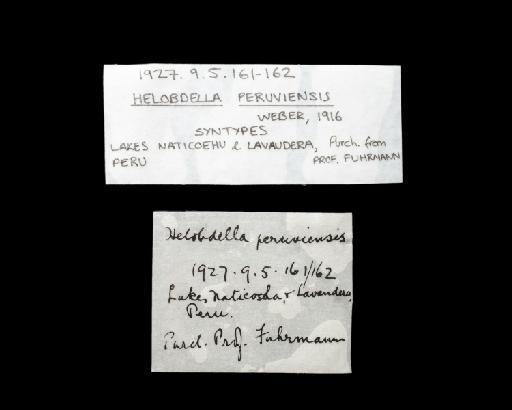 1927.9.5.161-162
HELOBDELLA PERUVIENSIS
WEBER, 1916
SYNTYPES
LAKES NATICOEHU & LAVAUDERA, Purch. from
PERU PROF. FUHRMANN
Helobdella peruviensis
1927.9.5.161/162
Lakes Naticocha & Lavandera,
Peru.
Purcd. Prof. Fuhrmann